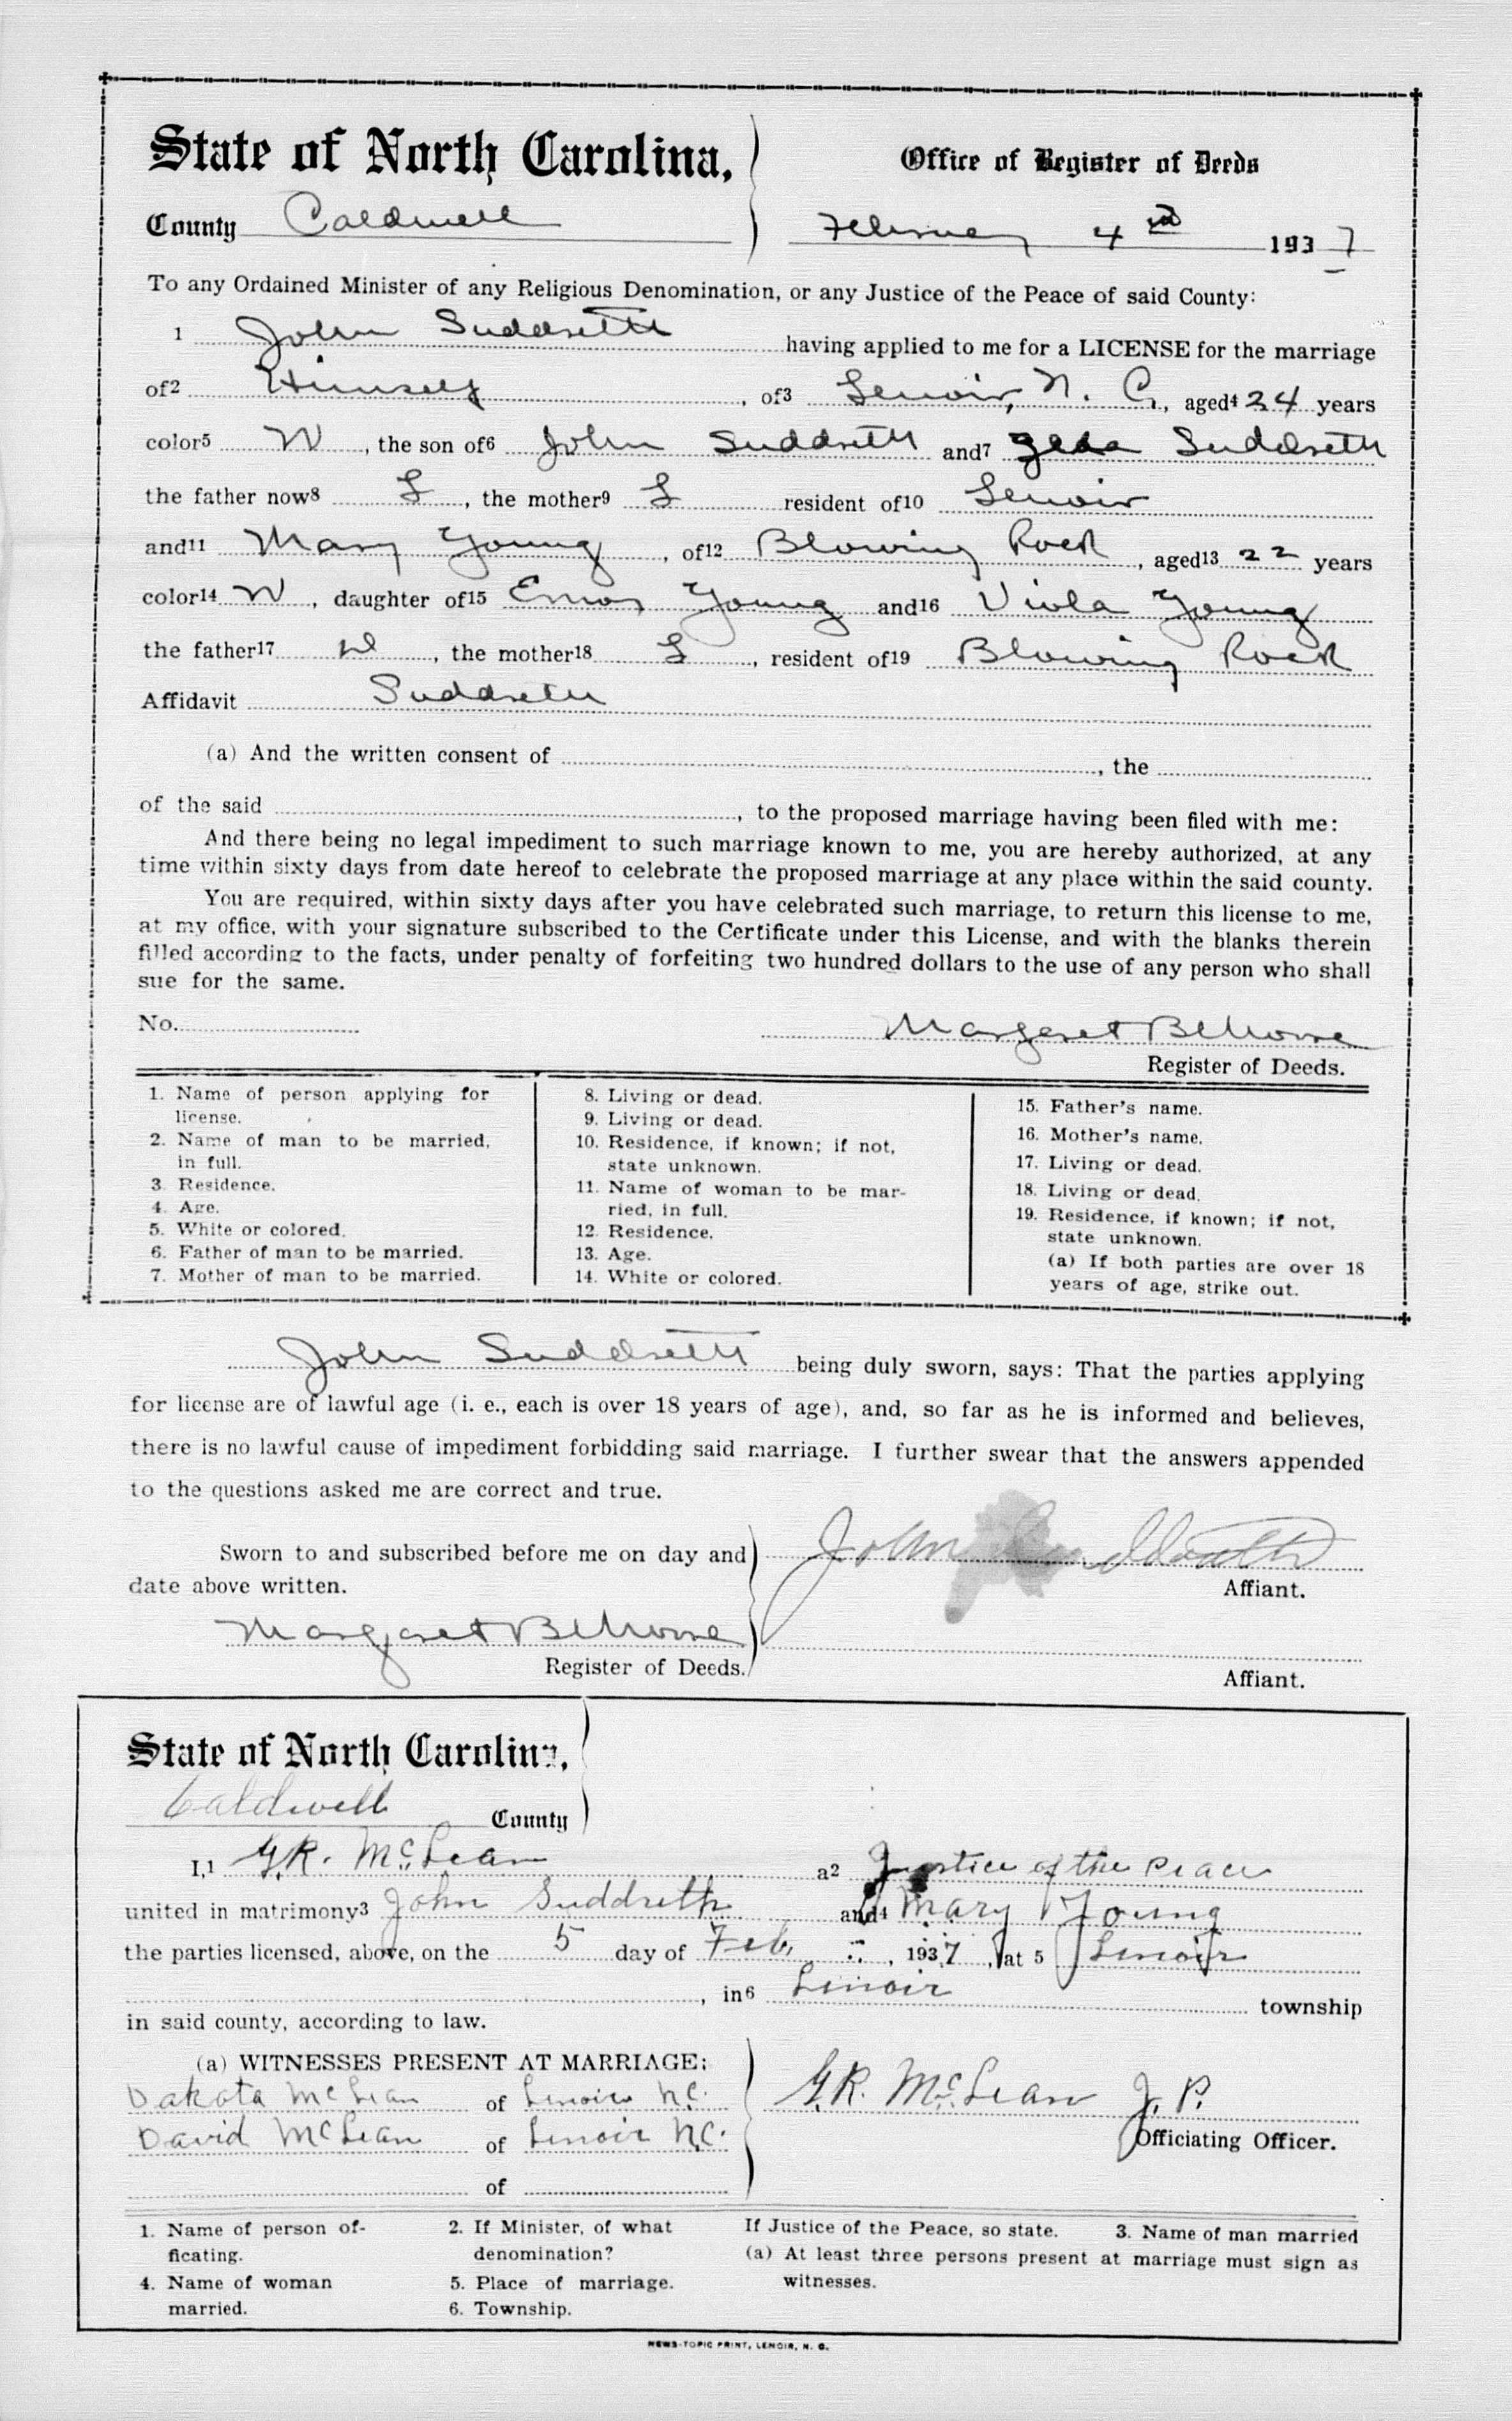 State of North Carolina, Office of Register of Deeds
County Caldwell February 4 1937
To any Ordained Minister of any Religious Denomination, or any Justice of the Peace of said County:
1 John Suddreth having applied to me for a LICENSE for the marriage
of2 Himself, of3 Lenoir, N. C., aged4 24 years
color5 W, the son of6 John Suddreth and7 Suddreth
the father now8 L, the mother9 L resident of10 Lenoir
and11 Mary Young, of12 Blowing Rock, aged13 22 years
color14 W, daughter of15 Young and16 Viola Young
the father17, the mother18 L, resident of19 Blowing Rock
Affidavit Suddreth
(a) And the written consent of , the
of the said , to the proposed marriage having been filed with me:
And there being no legal impediment to such marriage known to me, you are hereby authorized, at any
time within sixty days from date hereof to celebrate the proposed marriage at any place within the said county.
You are required, within sixty days after you have celebrated such marriage, to return this license to me,
at my office, with your signature subscribed to the Certificate under this License, and with the blanks therein
filled according to the facts, under penalty of forfeiting two hundred dollars to the use of any person who shall
sue for the same.
No.
Margaret
Register of Deeds.
1. Name of person applying for
license.
2. Name of man to be married,
in full.
3. Residence.
4. Age.
5. White or colored.
6. Father of man to be married.
7. Mother of man to be married.
8. Living or dead.
9. Living or dead.
10. Residence, if known; if not,
state unknown.
11. Name of woman to be mar-
ried, in full.
12. Residence.
13. Age.
14. White or colored.
15. Father's name.
16. Mother's name.
17. Living or dead.
18. Living or dead.
19. Residence, if known; if not,
state unknown.
(a) If both parties are over 18
years of age, strike out.
John Suddreth being duly sworn, says: That the parties applying
for license are of lawful age (i. e., each is over 18 years of age), and, so far as he is informed and believes,
there is no lawful cause of impediment forbidding said marriage. I further swear that the answers appended
to the questions asked me are correct and true.
Sworn to and subscribed before me on day and
date above written.
John Suddreth
Affiant.
Margaret
Register of Deeds.
Affiant.
State of North Carolina,
Caldwell County
I,1 G.R. McLean a2 Justice of the Peace
united in matrimony3 John Suddreth and4 Mary Young
the parties licensed, above, on the 5 day of Feb, 1937, at 5 Lenoir
, in6 Lenoir township
in said county, according to law.
(a) WITNESSES PRESENT AT MARRIAGE:
Dakota McLean of Lenoir N.C.
David McLean of Lenoir N.C.
of
G.R. McLean J. P.
Officiating Officer.
1. Name of person of-
ficating.
4. Name of woman
married.
2. If Minister, of what
denomination?
5. Place of marriage.
6. Township.
If Justice of the Peace, so state. 3. Name of man married
(a) At least three persons present at marriage must sign as
witnesses.
NEWS-TOPIC PRINT, LENOIR, N. C.